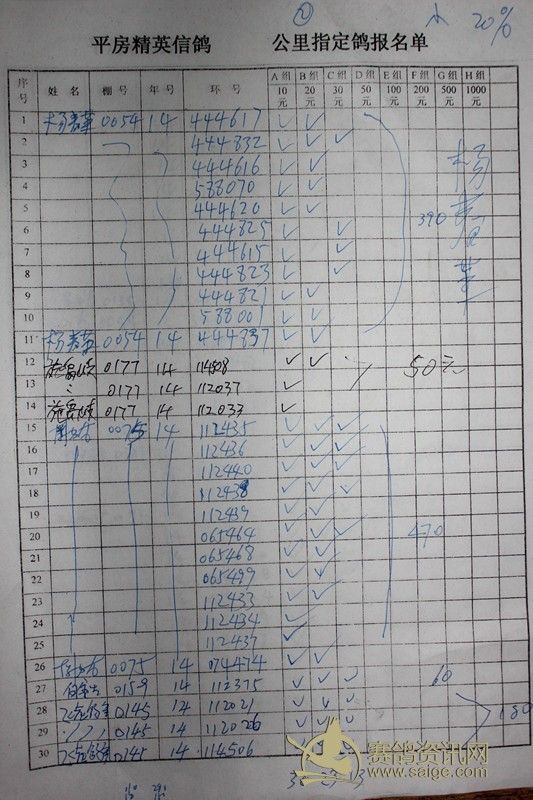 ② 20%
平房精英信鸽 公里指定鸽报名单
序号 姓名 棚号 年号 环号 A组10元 B组20元 C组30元 D组50元 E组100元 F组200元 G组500元 H组1000元
1 0054 14 444617 ✓ ✓
2 444832 ✓ ✓ ✓
3 444616 ✓ ✓
4 588070 ✓ ✓
5 444620 ✓ ✓
6 444825 ✓ ✓ 390
7 444615 ✓ ✓
8 444823 ✓ ✓
9 444821 ✓ ✓
10 588001 ✓ ✓
11 0054 14 444837 ✓ ✓
12 0177 14 114508 ✓ ✓ 50元
13 0177 14 112037 ✓
14 0177 14 112033 ✓
15 0075 14 112435 ✓ ✓ ✓
16 112436 ✓ ✓ ✓
17 112440 ✓ ✓ ✓
18 112438 ✓ ✓ ✓
19 112439 ✓ ✓ ✓
20 065464 ✓ ✓ ✓ 470
21 065468 ✓ ✓
22 065499 ✓ ✓
23 112433 ✓ ✓
24 112434 ✓
25 112437 ✓
26 0075 14 074474 ✓ ✓
27 0159 14 112375 ✓ ✓ ✓ 60
28 0145 14 112021 ✓ ✓ ✓
29 0145 14 112026 ✓ ✓ ✓ 180
30 0145 14 114506
赛鸽资讯网
www.saige.com